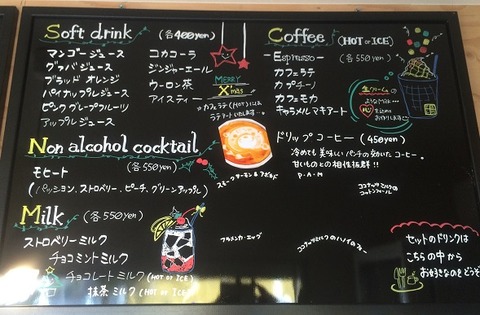 Soft drink (各400yen)
マンゴージュース
グァバジュース
ブラッド オレンジ
パイナップルジュース
ピンクグレープフルーツ
アップルジュース
コカコーラ
ジンジャーエール
ウーロン茶
アイスティー
MERRY
Xmas
Non alcohol cocktail
(各550yen)
モヒート
(パッション、ストロベリー、ピーチ、グリーンアップル)
Milk (各550yen)
ストロベリーミルク
チョコミントミルク
チョコレートミルク (HOT or ICE)
抹茶ミルク (HOT or ICE)
Coffee (HOT or ICE)
-Espresso- (各550yen)
カフェラテ
カプチーノ
カフェモカ
キャラメルマキアート
ドリップコーヒー (450yen)
冷めても美味しいパンチの効いたコーヒー。
甘いものとの相性抜群!!
P.A.M
セットのドリンクは
こちらの中から
お好きなのをどうぞ